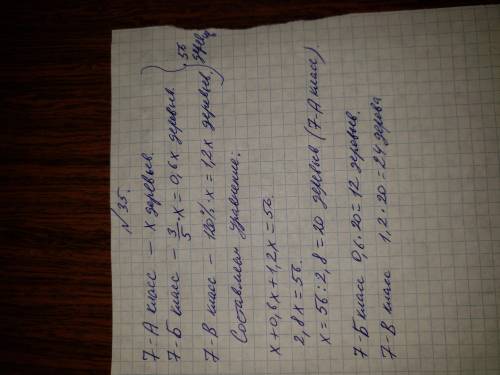 №35.
7-А класс – х деревьев.
7-Б класс – 3/5·х = 0,6х деревьев. } 56 дерев
7-В класс – 120%·х = 1,2х деревьев.
Составляем уравнение:
х+0,6х+1,2х=56.
2,8х=56.
х=56:2,8=20 деревьев (7-А класс).
7-Б класс 0,6·20=12 деревьев.
7-В класс 1,2·20=24 дерева